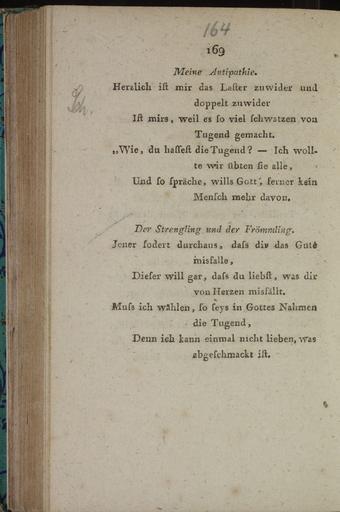 164
169
Meine Antipathie.
Herzlich iſt mir das Laſter zuwider und
doppelt zuwider
Iſt mirs, weil es ſo viel ſchwatzen von
Tugend gemacht.
„Wie, du haſſeſt die Tugend? — Ich woll-
te wir übten ſie alle,
Und ſo ſpräche, wills Gott, ferner kein
Menſch mehr davon.
Der Strengling und der Frömmling.
Jener fodert durchaus, daſs dir das Gute
misfalle,
Dieſer will gar, daſs du liebſt, was dir
von Herzen misfällt.
Muſs ich wählen, ſo ſeys in Gottes Nahmen
die Tugend,
Denn ich kann einmal nicht lieben, was
abgeſchmackt iſt.